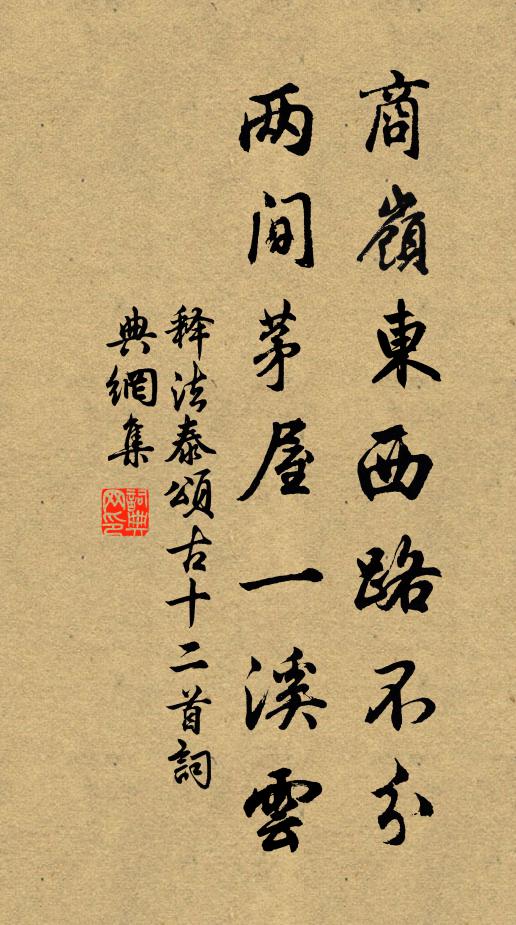 商嶺東西路不分
两间茅屋一溪雲
释法泰頌古十二首詞
典網集
詞典网印